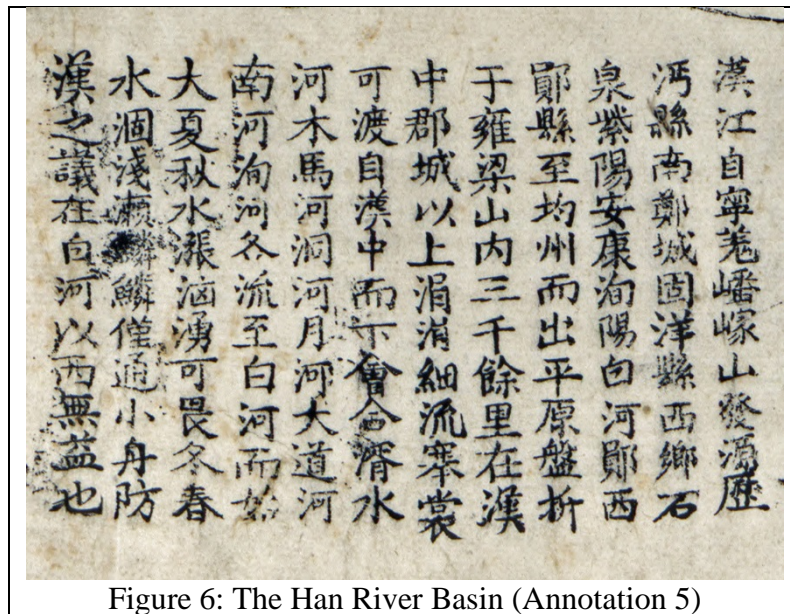 漢江自寧羗嶓冢山發源歷
沔縣南鄭城固洋縣西鄉石
泉紫陽安康洵陽白河鄖西
鄖縣至均州而出平原盤折
于雍梁山內三千餘里在漢
中郡城以上涓涓細流搴裳
可渡自漢中而下會合湑水
河木馬河洞河月河大道河
南河洵河各流至白河而始
大夏秋水漲洶湧可畏冬春
水涸淺瀨鱗鱗僅通小舟防
漢之議在白河以西無益也
Figure 6: The Han River Basin (Annotation 5)